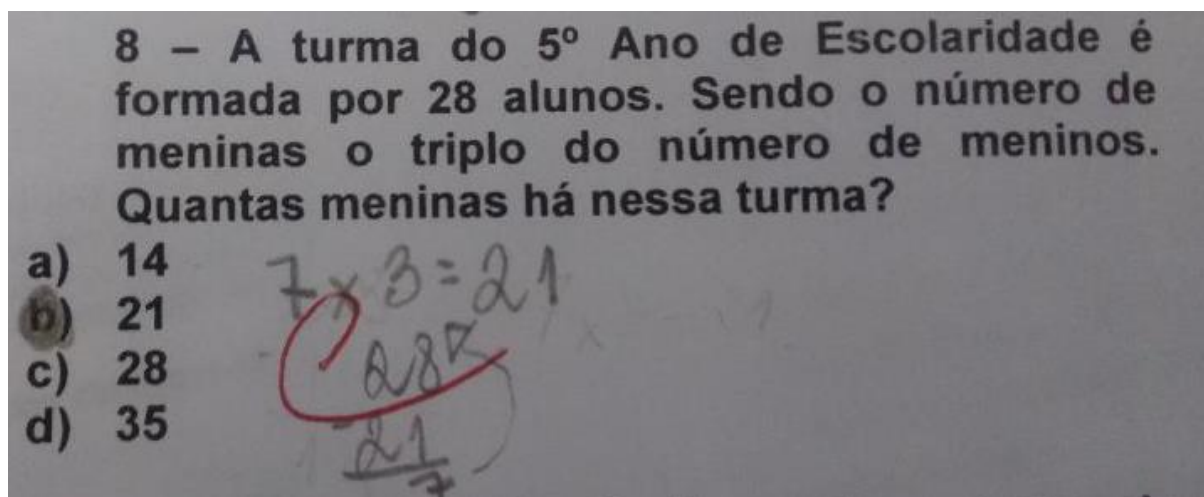 8 – A turma do 5º Ano de Escolaridade é
formada por 28 alunos. Sendo o número de
meninas o triplo do número de meninos.
Quantas meninas há nessa turma?
a) 14
b) 21
c) 28
d) 35
7 x 3 = 21
28
-21
7